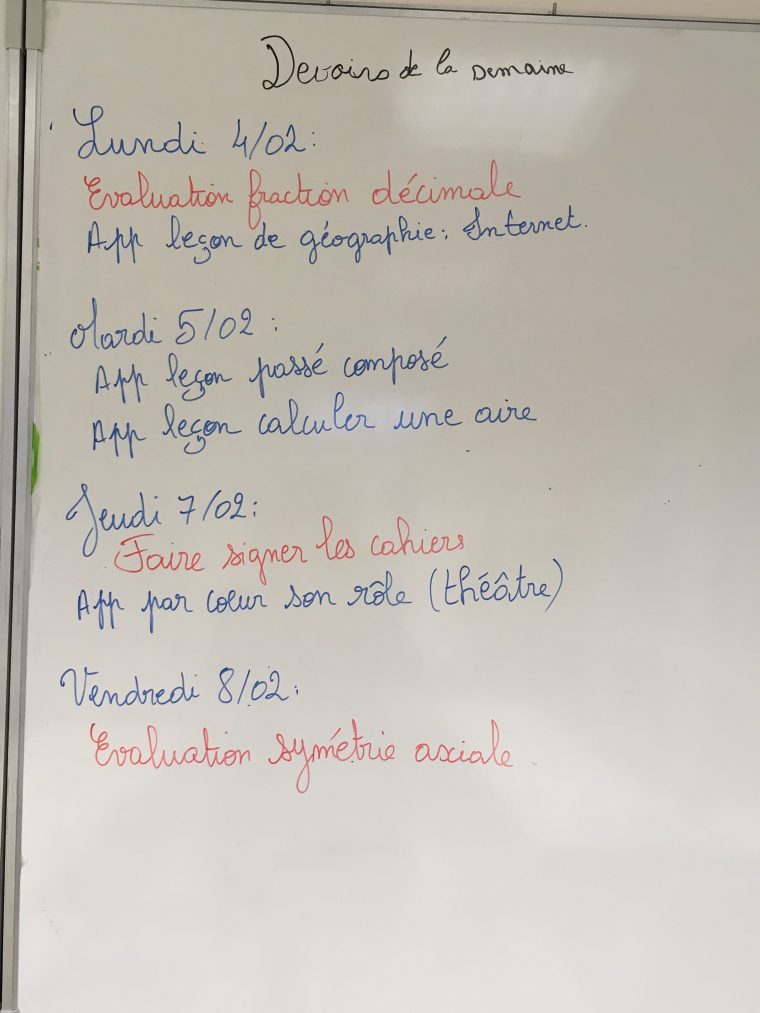 Devoirs de la semaine
Lundi 4/02:
Evaluation fraction décimale
App leçon de géographie: Internet.
Mardi 5/02:
App leçon passé composé
App leçon calculer une aire
Jeudi 7/02:
Faire signer les cahiers
App par coeur son rôle (théâtre)
Vendredi 8/02:
Evaluation symétrie axiale